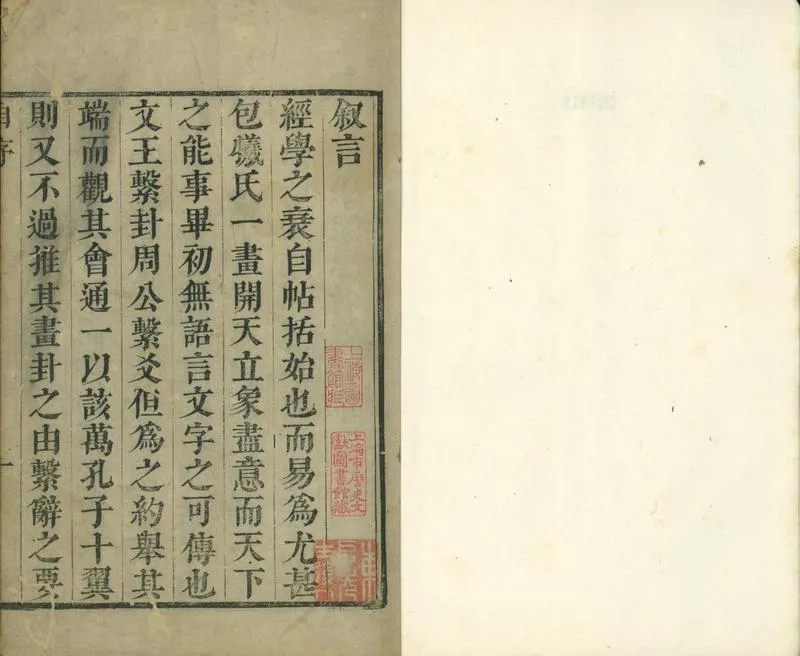 叙言
經學之衰自帖括始也而易為尤甚
包犧氏一畫開天立象盡意而天下
之能事畢初無語言文字之可傳也
文王繫卦周公繫爻但為之約舉其
端而觀其會通一以該萬孔子十翼
則又不過推其畫卦之由繫辭之要
自序
一
上海圖
書館藏
上海市歷史文
獻圖書館藏